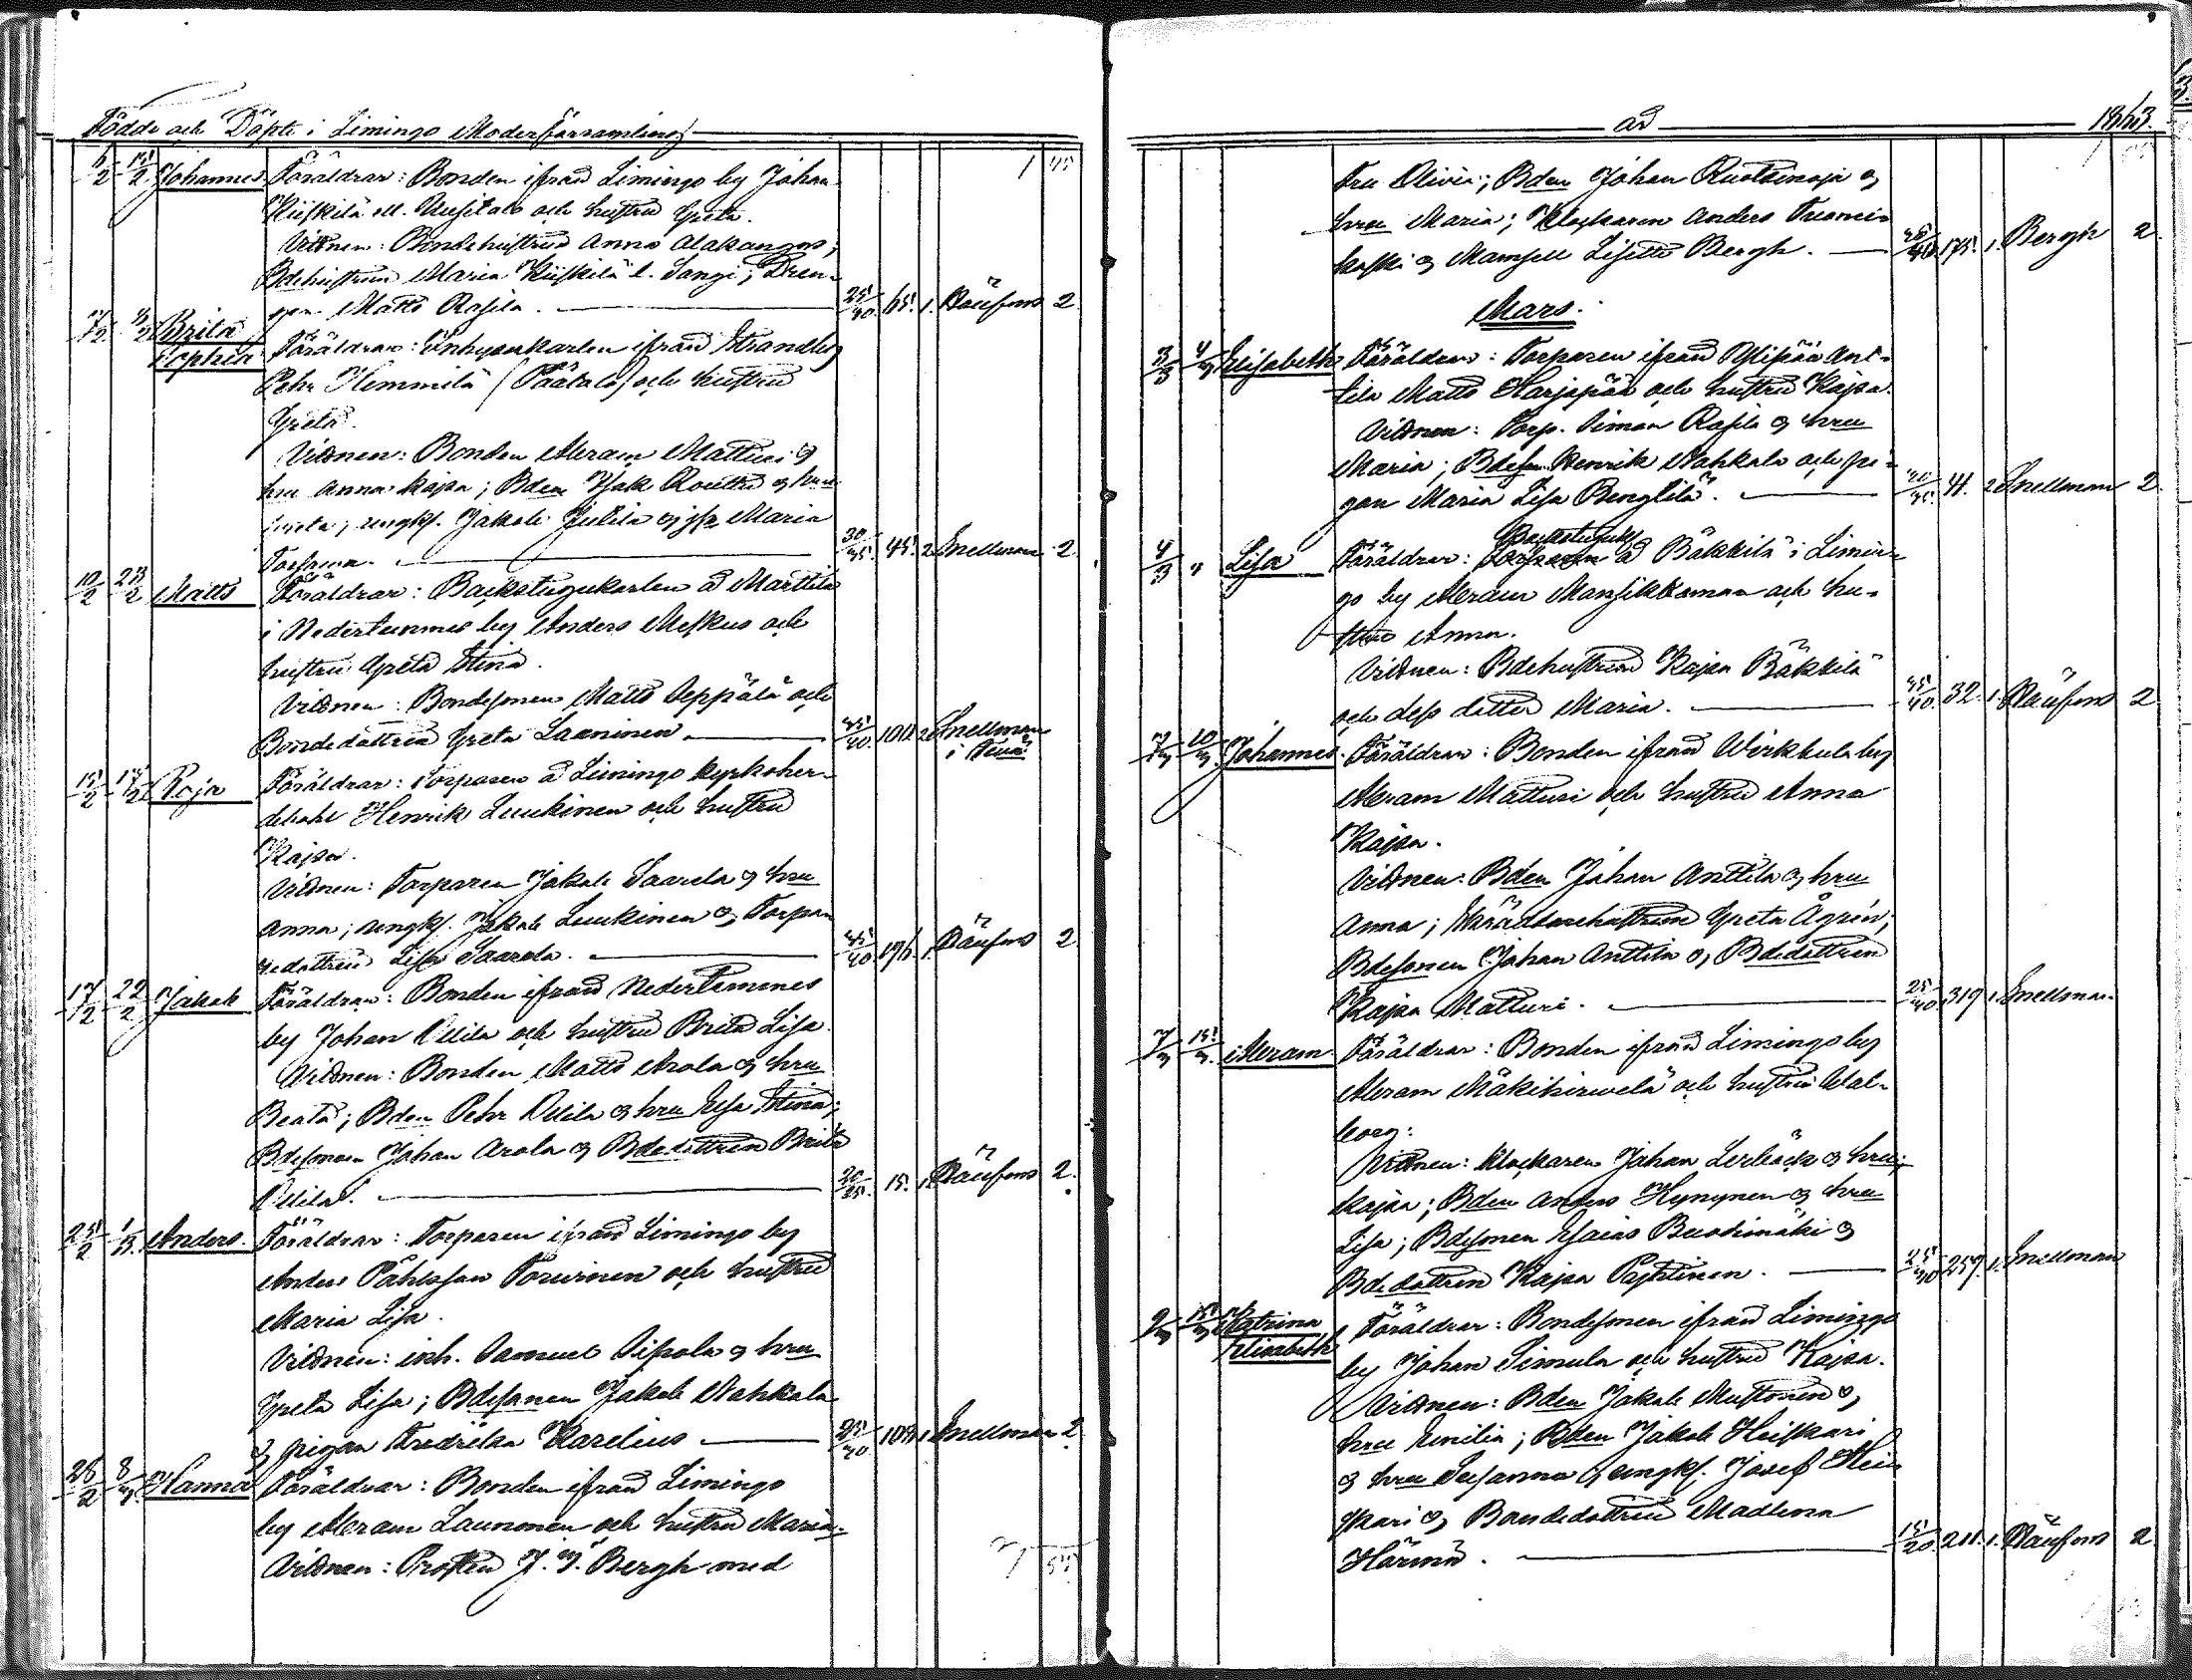 Födde och Döpte i Limingo Moderförsamling
6/2 15/2 Johannes Föräldrar: Bonden ifrån Limingo by Johan
Kiiskilä ell. Uusitalo och hustru Greta.
Vittnen: Bondehustrun Anna Alakangas;
Bdehustrun Maria Kiiskilä l. Sangi; Drän-
gen Matts Rasila. 25/30 65. 1. 2
Brita Sophia Föräldrar: Inhysekarlen ifrån
Pehr Hemmilä (Päätalo) och hustru
Greta.
Vittnen: Bonden Abram Matturi &
hru Anna Kajsa; Bden Isak Routtu & hru
Greta; ungk. Jakob Juttila & Maria
30/35. 45. 2 Snellman 2
Matts Föräldrar: Backstugukarlen å Marttila
i Nedertemmes by Anders Meskus och
hustru Greta Stina.
Vittnen: Bondesonen Matts Seppälä och
Bondedottren Greta Laaninen 100. 2 Snellman
17/2 Kajsa Föräldrar: Torparen å Limingo kyrkoher-
debohl Henrik Luukinen och hustru
Kajsa.
Vittnen: Torparen Jakob Saarela & hru
Anna; ungk. Jakob Luukinen & Torpa-
redottren Lisa Saarela. 196. 1. 2
17/2 22/2 Jakob Föräldrar: Bonden ifrån Nedertemmes
by Johan Ollila och hustru Brita Lisa.
Vittnen: Bonden Matts Arola & hru
Beata; Bden Pehr Ollila & hru Elsa Stina;
Bdesonen Johan Arola & Bdedottren Brita
Ollila. 20/25. 15. 1. 2.
25/2 1/3. Anders. Föräldrar: Torparen ifrån Limingo by
Anders Påhlsson Torvinen och hustru
Maria Lisa.
Vittnen: inh. Samuel Sipola & hru
Greta Lisa; Bdesonen Jakob Nahkala
& pigan Fredrika Karelius 103. 1. Snellman 2
26/2 8/3. Hanna Föräldrar: Bonden ifrån Limingo
by Abram Launonen och hustru Maria.
Vittnen: Prosten J. F. Bergh med
år 1863.
fru Olivia; Bden Johan Ruotsinoja &
hru Maria; Klockaren Anders
& Mamsell Lisette Bergh. 175. 1. Bergh 2
Mars.
3/3 4/3 Elisabeth Föräldrar: Torparen ifrån Ylipää Ant-
tila Matts Karjapää och hustru Kajsa.
Vittnen: Torp. Simon Rasila & hru
Maria; Bdeson Henrik Nahkala och pi-
gan Maria Lisa Bengtilä. 41. 2 Snellman 2.
Backstuguk.
4/3 " Lisa Föräldrar: å Bäkkilä i Limin-
go by Abram Mansikkamaa och hu-
stru Anna.
Vittnen: Bdehustrun Kajsa Bäkkilä
och dess dotter Maria. 32. 1. 2
7/3 10/3 Johannes. Föräldrar: Bonden ifrån Wirkkula by
Abram Matturi och hustru Anna
Kajsa.
Vittnen: Bden Johan Anttila & hru
Anna; Skräddarehustrun Greta Ågren;
Bdesonen Johan Anttila & Bdedottren
Kajsa Matturi. 25/30. 319 1. Snellman.
7/3 15/3. Abram Föräldrar: Bonden ifrån Limingo by
Abram Mäkihirvelä och hustru Wal-
borg:
Vittnen: Klockaren Johan Lerbäck & hru
Kajsa; Bden Anders Hynynen & hru
Lisa; Bdesonen Esaias Buodimäki &
Bdedottren Kajsa Pajstinen. 259. 1. Snellman
9/3 15/3 Katrina Elisabeth Föräldrar: Bondesonen ifrån Limingo
by Johan Simula och hustru Kajsa.
Vittnen: Bden Jakob Mustonen &
hru Emilia; Bden Jakob Heiskari
& hru Susanna & ungk. Josef Hei-
skari & Bondedottren Madlena
Härmä. 211. 1. 2